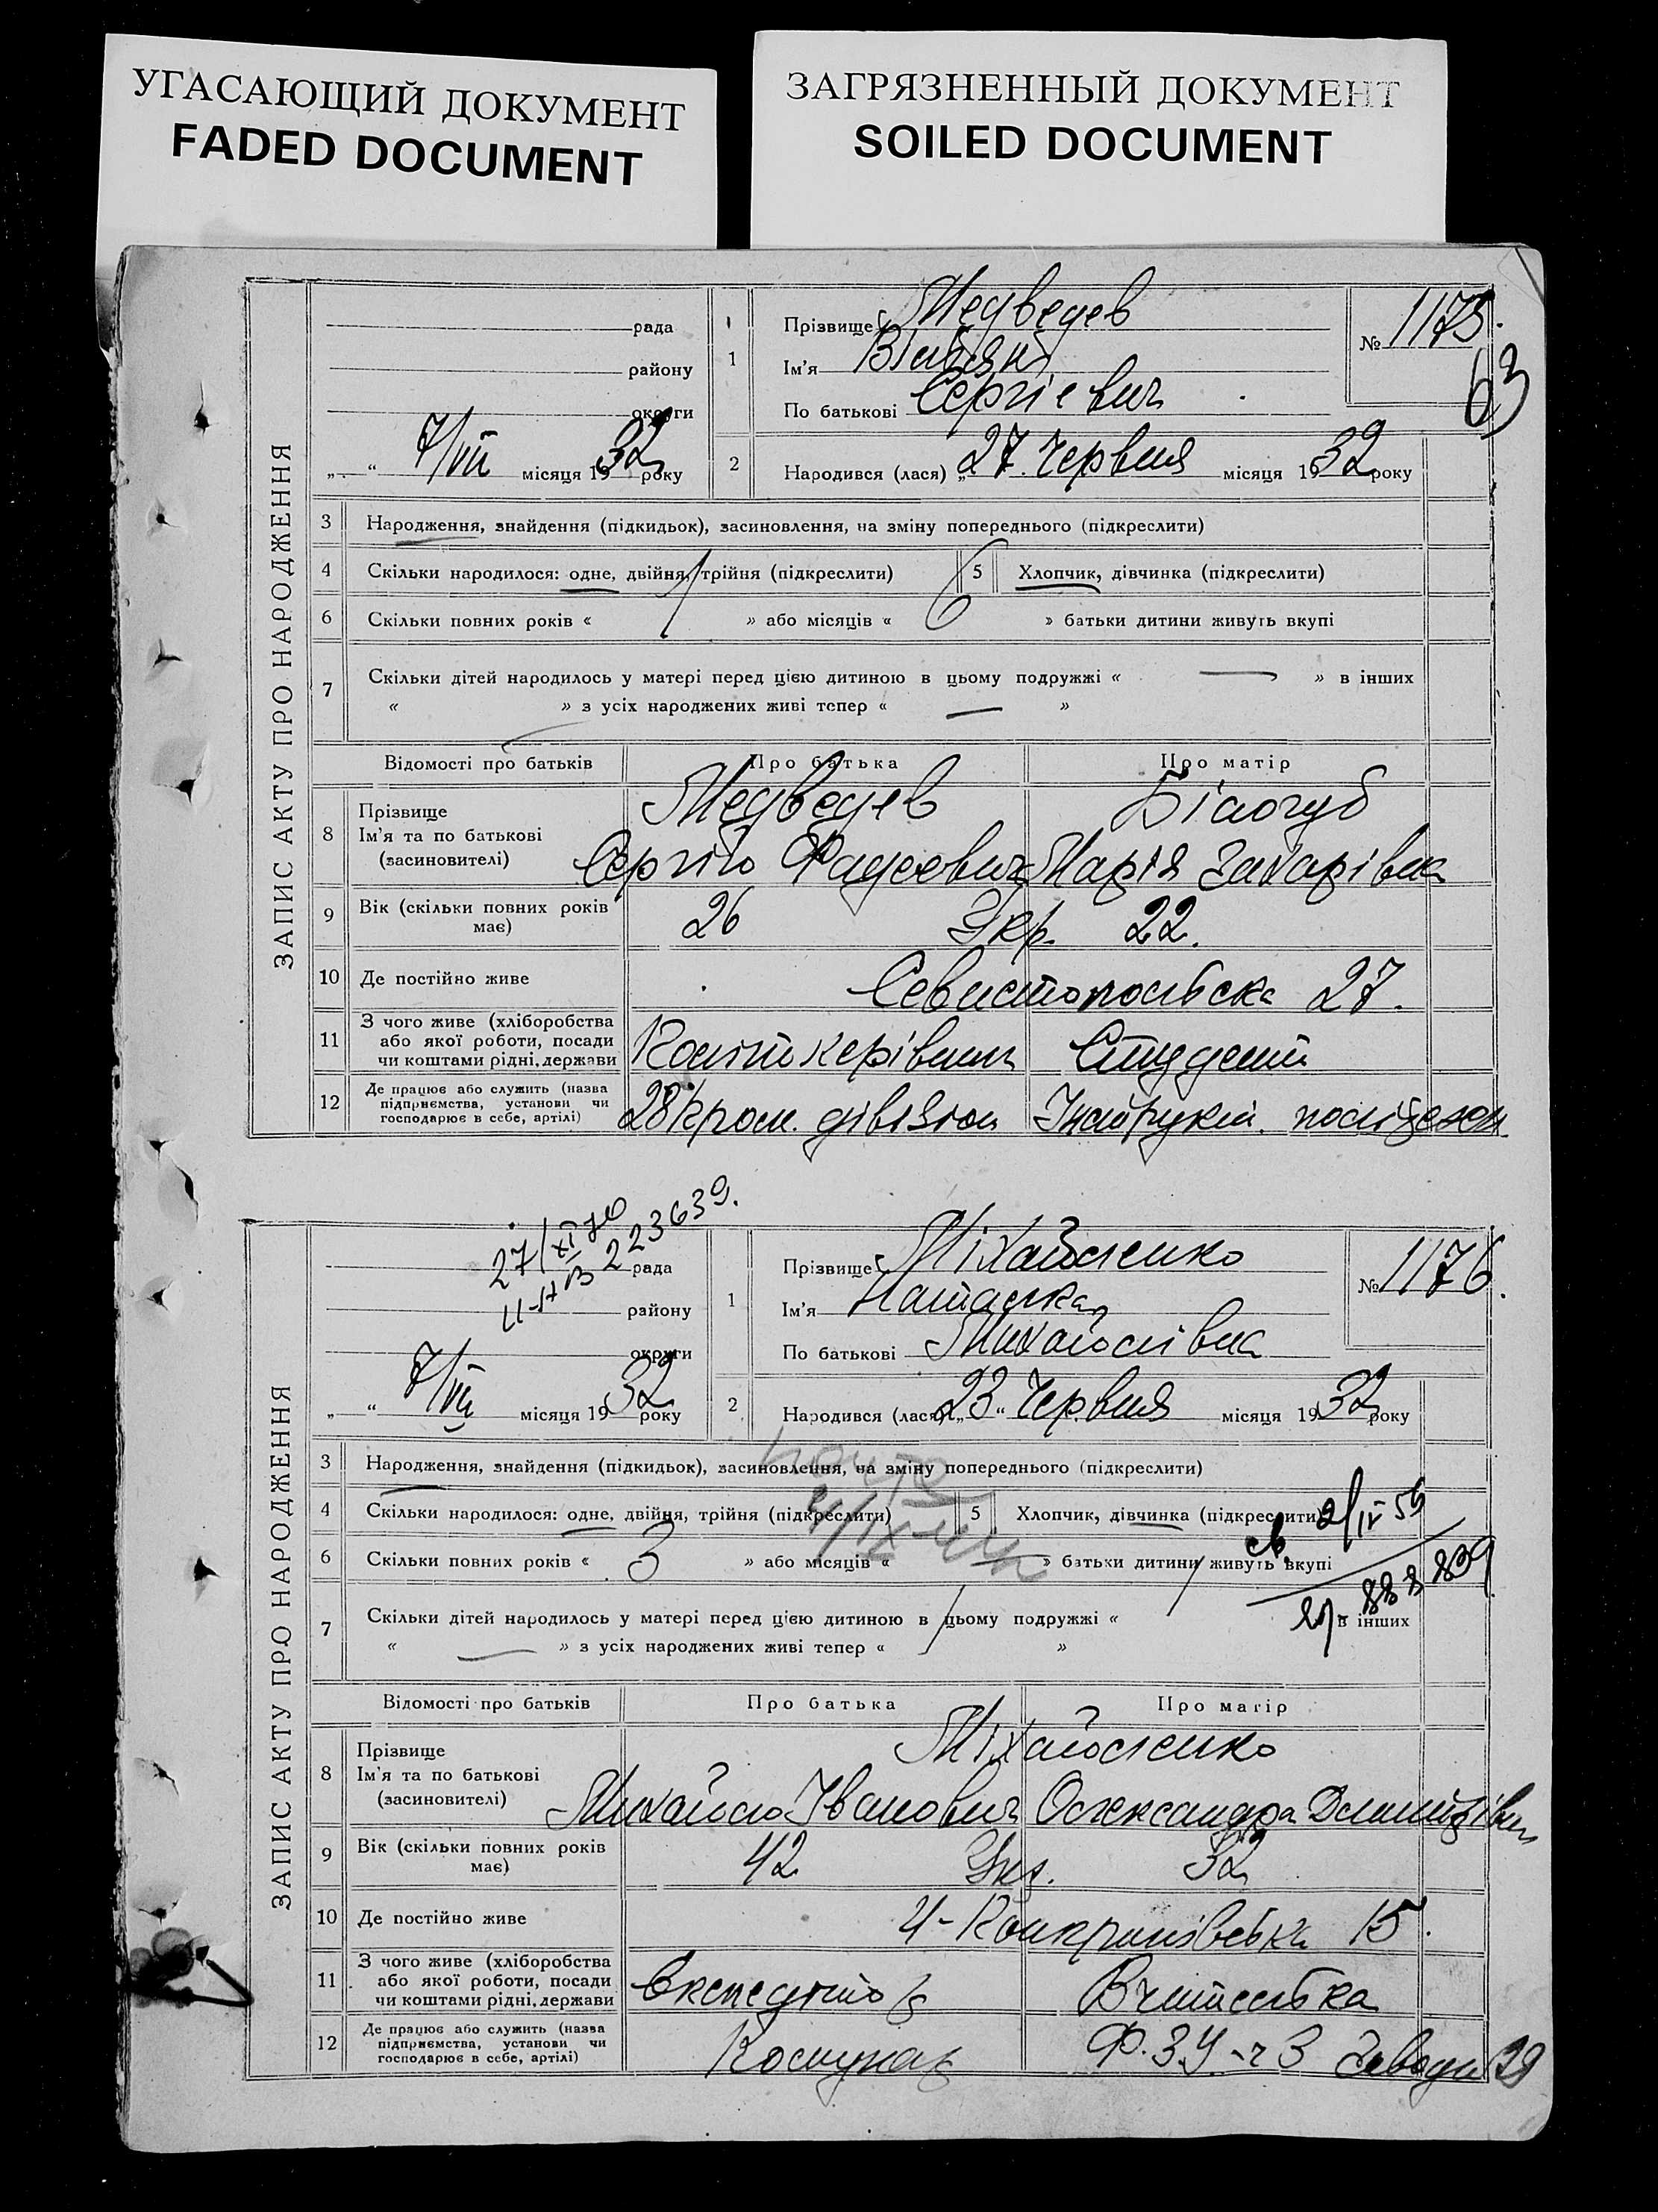 УГАСАЮЩИЙ ДОКУМЕНТ
FADED DOCUMENT
ЗАГРЯЗНЕННЫЙ ДОКУМЕНТ
SOILED DOCUMENT
ЗАПИС АКТУ ПРО НАРОДЖЕННЯ
рада
району
округи
„ “ 7/VII місяця 1932 року
1 Прізвище Медведев
Ім'я Віталій
По батькові Сергієвич
№ 1175.
63
2 Народився (лася) „27 Червня місяця 1932 року
3 Народження, знайдення (підкидьок), засиновлення, на зміну попереднього (підкреслити)
4 Скільки народилося: одне, двійня, трійня (підкреслити) 5 Хлопчик, дівчинка (підкреслити)
6 Скільки повних років « 1 » або місяців « 6 » батьки дитини живуть вкупі
7 Скільки дітей народилось у матері перед цією дитиною в цьому подружжі « — » в інших
« » з усіх народжених живі тепер « — »
Відомості про батьків Про батька Про матір
8 Прізвище
Ім'я та по батькові
(засиновителі)
Медведев Білогуб
Сергій Фадеевич Марія Захарівна
9 Вік (скільки повних років має) 26 Укр. 22.
10 Де постійно живе Севастопольська 27.
11 З чого живе (хліборобства
або якої роботи, посади
чи коштами рідні, держави
Політкерівник Студент
12 Де працює або служить (назва
підприємства, установи чи
господарює в себе, артілі)
дівізіон
27/XI 70
223639.
ЗАПИС АКТУ ПРО НАРОДЖЕННЯ
рада
району
округи
„ “ 7/VII місяця 1932 року
1 Прізвище Міхайленко
Ім'я Наталка
По батькові Михайлівна
№ 1176.
2 Народився (лася) „23“ Червня місяця 1932 року
3 Народження, знайдення (підкидьок), засиновлення, на зміну попереднього (підкреслити)
4 Скільки народилося: одне, двійня, трійня (підкреслити) 5 Хлопчик, дівчинка (підкреслити)
6 Скільки повних років « 3 » або місяців « — » батьки дитини живуть вкупі
7 Скільки дітей народилось у матері перед цією дитиною в цьому подружжі « » в інших
« — » з усіх народжених живі тепер « »
Відомості про батьків Про батька Про матір
8 Прізвище
Ім'я та по батькові
(засиновителі)
Міхайленко
Михайло Іванович Олександра Дмитрівна
9 Вік (скільки повних років має) 42 Укр. 32
10 Де постійно живе 15.
11 З чого живе (хліборобства
або якої роботи, посади
чи коштами рідні, держави
Експедитор Вчителька
12 Де працює або служить (назва
підприємства, установи чи
господарює в себе, артілі)
Ф.З.У. Заводу 29